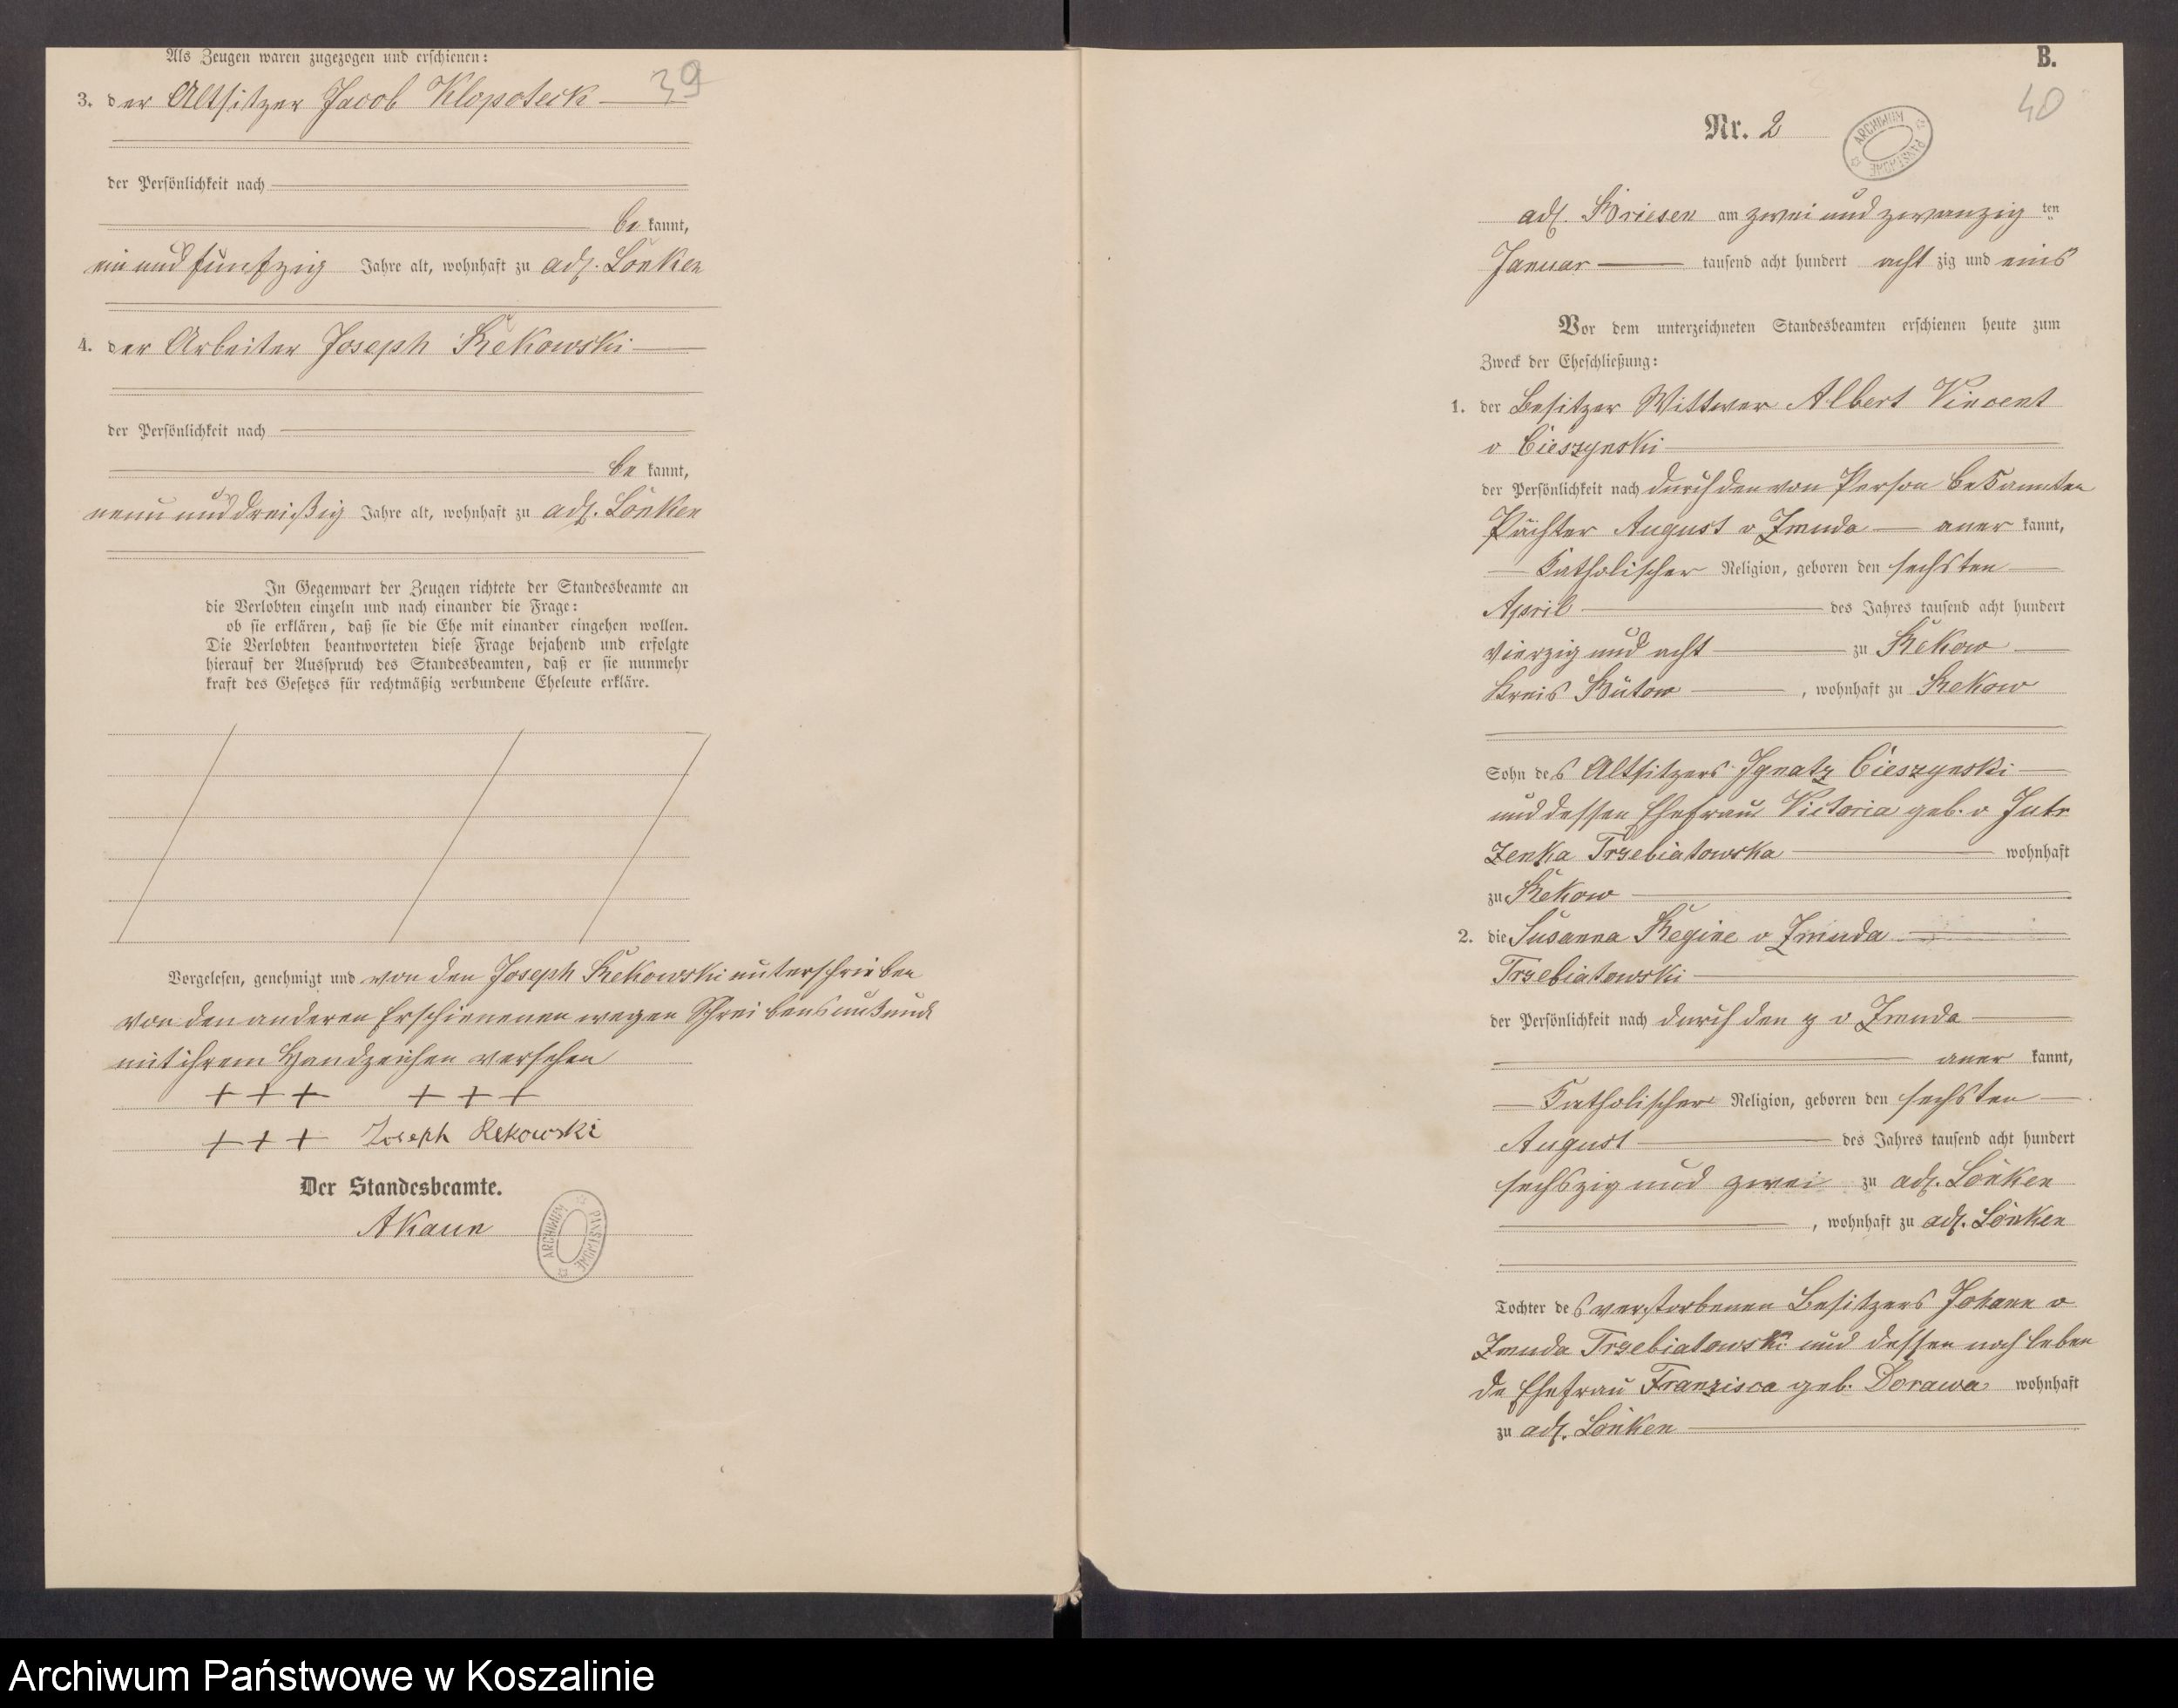 Als Zeugen waren zugezogen und erschienen:
39
3. der Altsitzer Jacob Klopoteck
der Persönlichkeit nach
be kannt,
ein und fünfzig Jahre alt, wohnhaft zu adl. Lonken
4. der Arbeiter Joseph Rekowski
der Persönlichkeit nach
be kannt,
neun und dreißig Jahre alt, wohnhaft zu adl. Lonken
In Gegenwart der Zeugen richtete der Standesbeamte an
die Verlobten einzeln und nach einander die Frage:
ob sie erklären, daß sie die Ehe mit einander eingehen wollen.
Die Verlobten beantworteten diese Frage bejahend und erfolgte
hierauf der Ausspruch des Standesbeamten, daß er sie nunmehr
kraft des Gesetzes für rechtmäßig verbundene Eheleute erkläre.
Vorgelesen, genehmigt und von den Joseph Rekowski unterschrieben
von den anderen Erschienenen wegen Schreibens
mit ihrem Handzeichen versehen
+ + + + + +
+ + + Joseph Rekowski
Der Standesbeamte.
AKaun
ARCHIWUM PAŃSTWOWE
B.
40
Nr. 2
ARCHIWUM PAŃSTWOWE
adl. Briesen am zwei und zwanzig ten
Januar tausend acht hundert acht zig und eins
Vor dem unterzeichneten Standesbeamten erschienen heute zum
Zweck der Eheschließung:
1. der Besitzer Wittwer Albert Vincent
v Cieszynski
der Persönlichkeit nach durch den von Person bekannten
Pächter August v Zmuda aner kannt,
Katholischer Religion, geboren den sechsten
April des Jahres tausend acht hundert
vierzig und acht zu Rekow
Kreis Bütow , wohnhaft zu Rekow
Sohn des Altsitzers Ignatz Cieszynski
und dessen Ehefrau Victoria geb. v Jutr
zenka Trzebiatowska wohnhaft
zu Rekow
2. die Susanna Regine v Zmuda
Trzebiatowski
der Persönlichkeit nach durch den p v Zmuda
aner kannt,
Katholischer Religion, geboren den sechsten
August des Jahres tausend acht hundert
sechszig und zwei zu adl. Lonken
, wohnhaft zu adl. Lonken
Tochter des verstorbenen Besitzers Johann v
Zmuda Trzebiatowski und dessen noch leben
de Ehefrau Franzisca geb. Dorawa wohnhaft
zu adl. Lonken
Archiwum Państwowe w Koszalinie